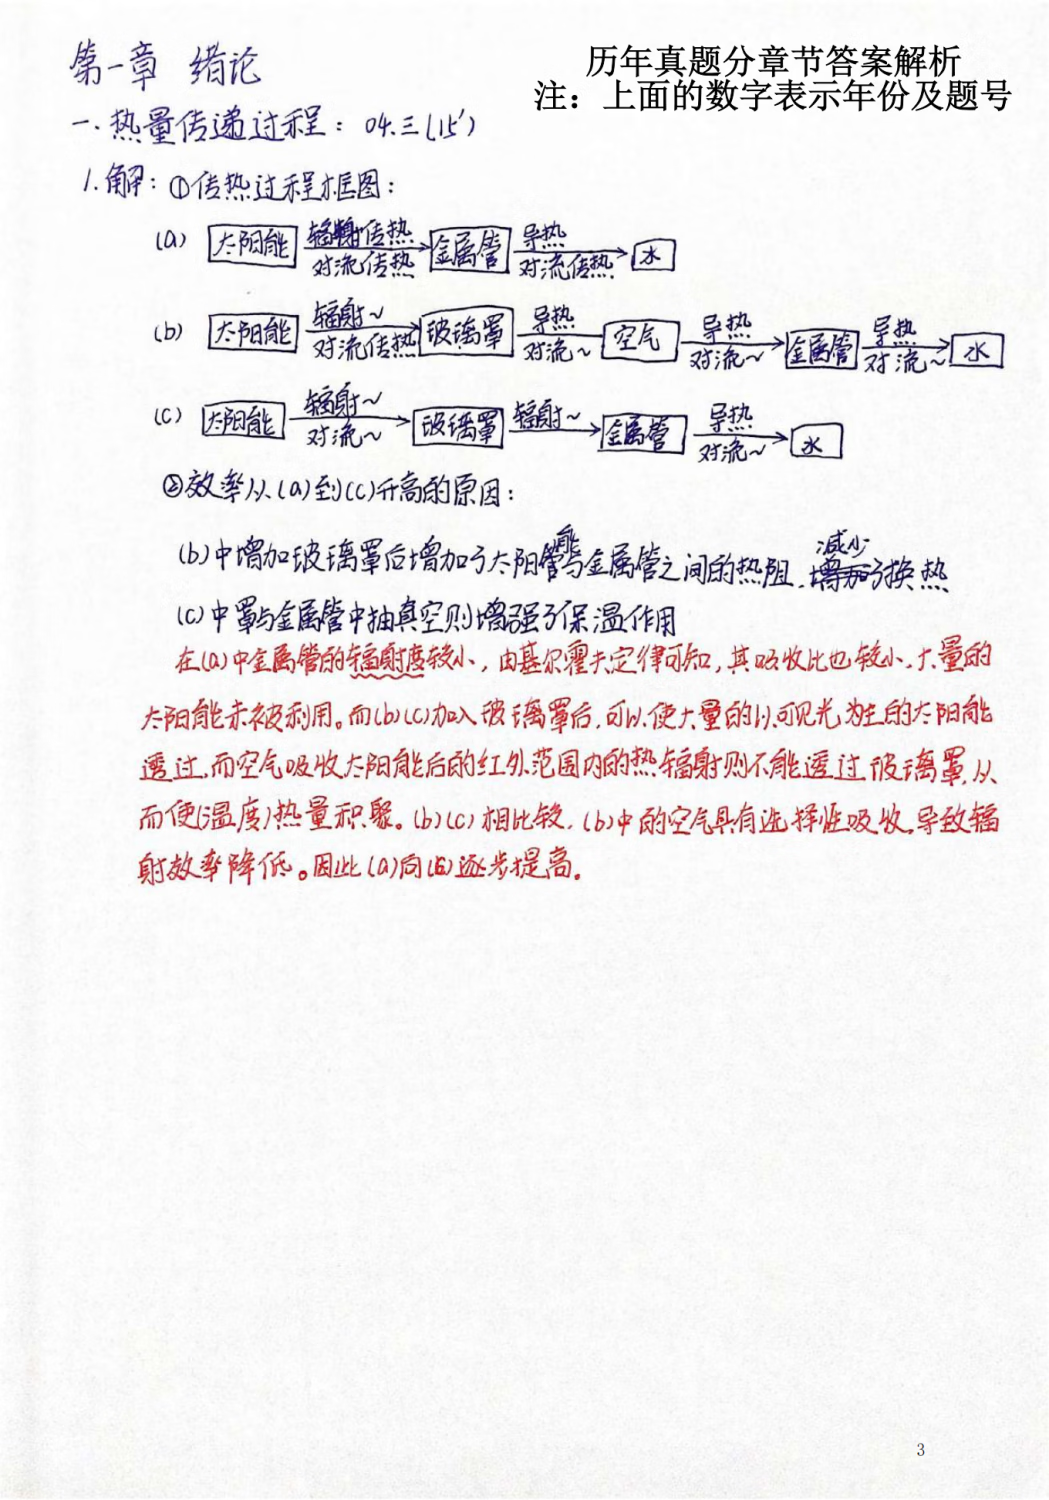 第一章 绪论
历年真题分章节答案解析
注：上面的数字表示年份及题号
一.热量传递过程：04.三(15')
1.解：①传热过程框图：
(a) 太阳能 辐射传热 对流传热 金属管 导热 对流传热 水
(b) 太阳能 辐射~ 对流传热 玻璃罩 导热 对流~ 空气 导热 对流~ 金属管 导热 对流~ 水
(c) 太阳能 辐射~ 对流~ 玻璃罩 辐射~ 金属管 导热 对流~ 水
②效率从(a)到(c)升高的原因：
(b)中增加玻璃罩后增加了太阳能与金属管之间的热阻.减少了换热
(c)中罩与金属管中抽真空则增强了保温作用
在(a)中金属管的辐射度较小，由基尔霍夫定律可知，其吸收比也较小.大量的
太阳能未被利用。而(b)(c)加入玻璃罩后，可以使大量的以可见光为主的太阳能
透过，而空气吸收太阳能后的红外范围内的热辐射则不能透过玻璃罩，从
而使(温度)热量积聚。(b)(c)相比较.(b)中的空气具有选择性吸收，导致辐
射效率降低。因此(a)向(c)逐步提高.
3